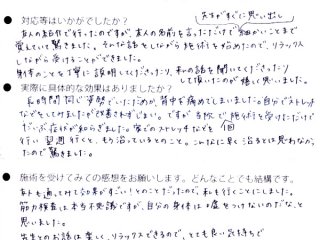 ●対応等はいかがでしたか?
友人の紹介で行ったのですが、友人の名前を言っただけで細かいことまで
覚えていて驚きました。そんな話をしながら施術を始めたので、リラックス
しながら受けることができました。
身体のことを丁寧に説明してくださったり、私の話を聞いてくださって
嬉しく思いました。
●実際に具体的な効果はありましたか?
長時間同じ姿勢でいたためか、背中を痛めてしまいました。自分でストレッチ
などをしてましたが改善されずにいました。ですが当院で施術を受けただけで
だいぶ症状が和らぎました。家でのストレッチなども
行い翌週行くと、もう治っているとのこと。こんなに早く治るとは思わなかっ
たので驚きました。
●施術を受けてみての感想をお願いします。どんなことでも結構です。
友人も通ってて効果がすごいとのことだったので、私も行くことにしました。
筋力検査は本当不思議ですが、自分の身体は嘘をつけないのだな、と
思いました。
先生とのお話は楽しく、リラックスできるので、とても良い気持ちで